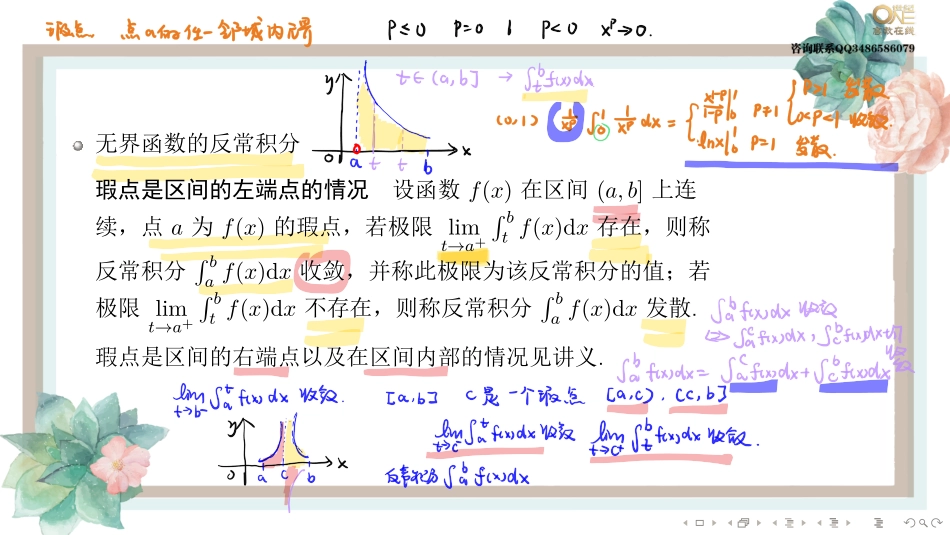 瑕点 点a的任一邻域内无界 P≤0 P=0 1 P<0 x^P→0.
ONE
咨询联系QQ3486586079
t∈(a,b] → ∫_t^b f(x)dx
(0,1) 1/x^P ∫_0^1 1/x^P dx = { x^{1-P}/(1-P)|_0^1 P≠1 { P>1 发散 0<P<1 收敛.
lnx|_0^1 P=1 发散.
y O a t t b x
无界函数的反常积分
瑕点是区间的左端点的情况 设函数 f(x) 在区间 (a, b] 上连
续，点 a 为 f(x) 的瑕点，若极限 lim_{t→a+} ∫_t^b f(x)dx 存在，则称
反常积分 ∫_a^b f(x)dx 收敛，并称此极限为该反常积分的值；若
极限 lim_{t→a+} ∫_t^b f(x)dx 不存在，则称反常积分 ∫_a^b f(x)dx 发散.
∫_a^b f(x)dx 收敛
⇔ ∫_a^c f(x)dx, ∫_c^b f(x)dx 均收敛
瑕点是区间的右端点以及在区间内部的情况见讲义.
∫_a^b f(x)dx = ∫_a^c f(x)dx + ∫_c^b f(x)dx
lim_{t→b-} ∫_a^t f(x)dx 收敛. [a,b] c是一个瑕点 [a,c), (c,b]
lim_{t→c-} ∫_a^t f(x)dx 收敛 lim_{t→c+} ∫_t^b f(x)dx 收敛.
y O a c b x
反常积分 ∫_a^b f(x)dx